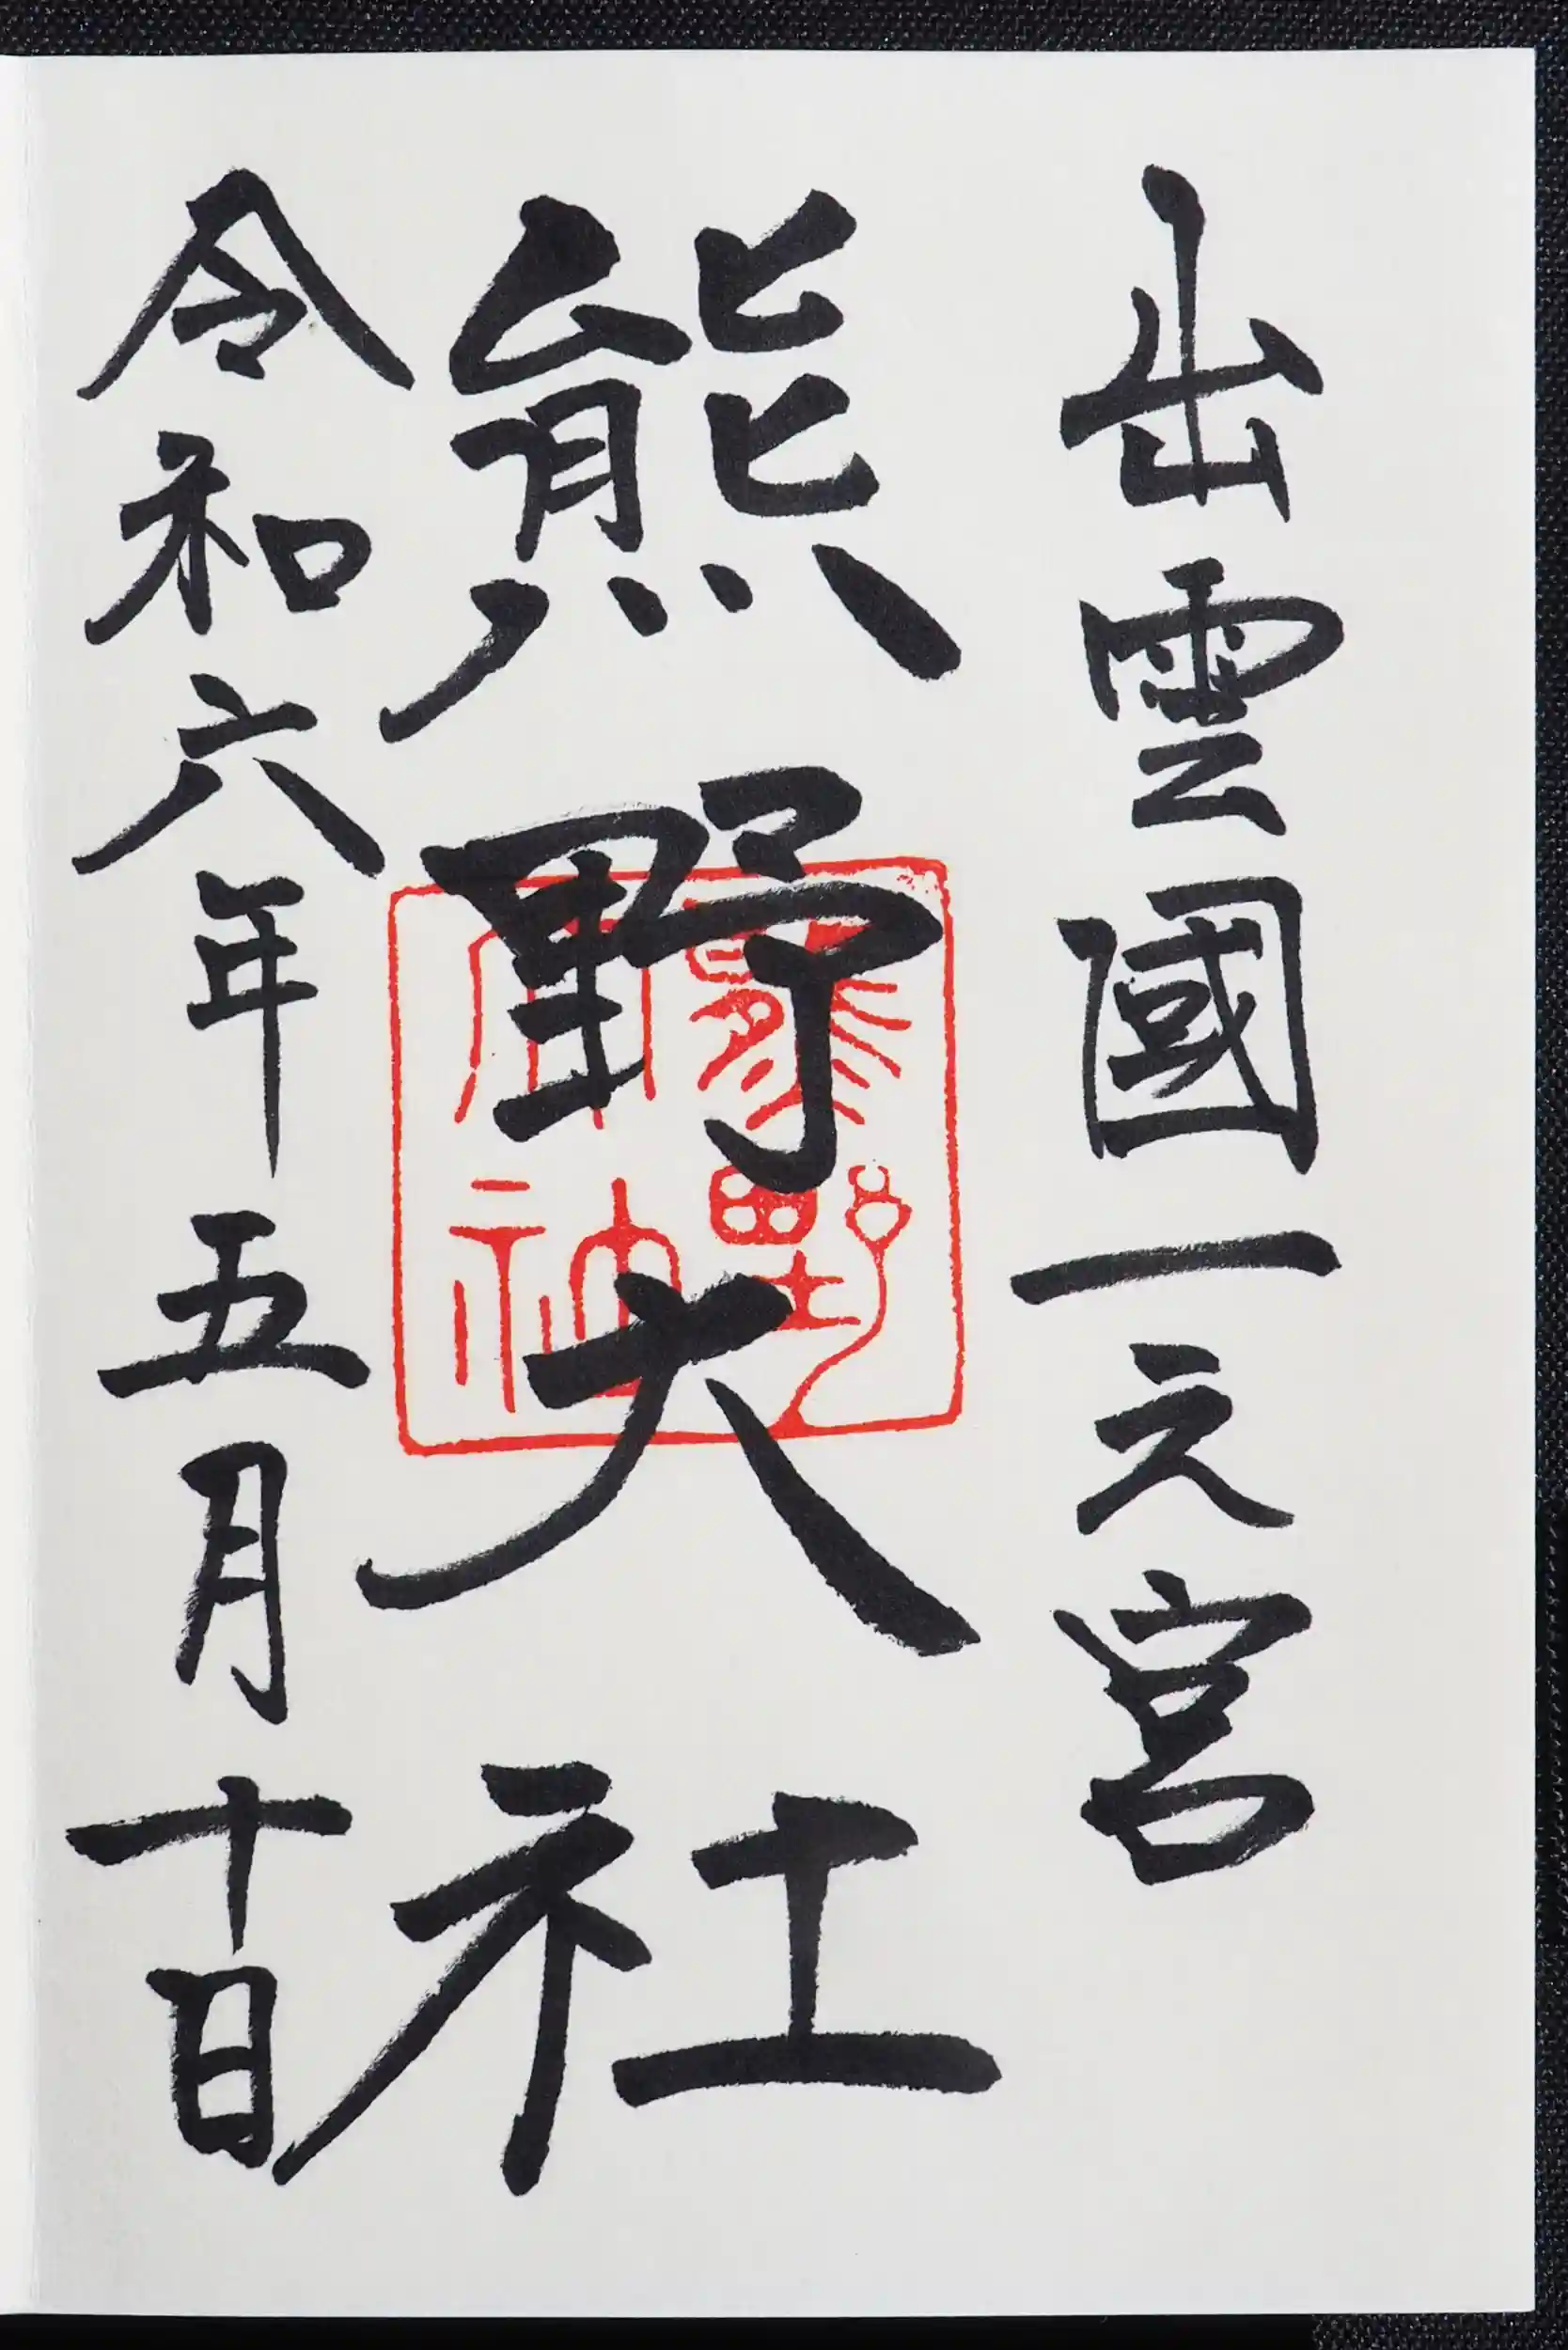 出雲國一之宮
熊野大社
令和六年五月十日
熊野
神